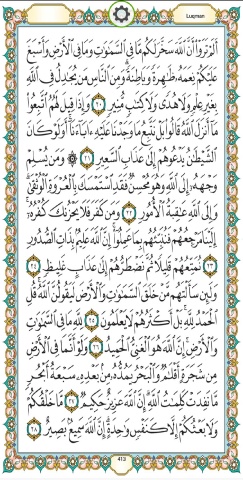 Luqman
أَلَمْ تَرَوْا۟ أَنَّ ٱللَّهَ سَخَّرَ لَكُم مَّا فِى ٱلسَّمَٰوَٰتِ وَمَا فِى ٱلْأَرْضِ وَأَسْبَغَ
عَلَيْكُمْ نِعَمَهُۥ ظَٰهِرَةً وَبَاطِنَةً ۗ وَمِنَ ٱلنَّاسِ مَن يُجَٰدِلُ فِى ٱللَّهِ
بِغَيْرِ عِلْمٍ وَلَا هُدًى وَلَا كِتَٰبٍ مُّنِيرٍ ٢٠ وَإِذَا قِيلَ لَهُمُ ٱتَّبِعُوا۟
مَآ أَنزَلَ ٱللَّهُ قَالُوا۟ بَلْ نَتَّبِعُ مَا وَجَدْنَا عَلَيْهِ ءَابَآءَنَآ ۚ أَوَلَوْ كَانَ
ٱلشَّيْطَٰنُ يَدْعُوهُمْ إِلَىٰ عَذَابِ ٱلسَّعِيرِ ٢١ ۞ وَمَن يُسْلِمْ
وَجْهَهُۥٓ إِلَى ٱللَّهِ وَهُوَ مُحْسِنٌ فَقَدِ ٱسْتَمْسَكَ بِٱلْعُرْوَةِ ٱلْوُثْقَىٰ ۗ
وَإِلَى ٱللَّهِ عَٰقِبَةُ ٱلْأُمُورِ ٢٢ وَمَن كَفَرَ فَلَا يَحْزُنكَ كُفْرُهُۥٓ ۚ
إِلَيْنَا مَرْجِعُهُمْ فَنُنَبِّئُهُم بِمَا عَمِلُوٓا۟ ۚ إِنَّ ٱللَّهَ عَلِيمٌۢ بِذَاتِ ٱلصُّدُورِ
٢٣ نُمَتِّعُهُمْ قَلِيلًا ثُمَّ نَضْطَرُّهُمْ إِلَىٰ عَذَابٍ غَلِيظٍ ٢٤
وَلَئِن سَأَلْتَهُم مَّنْ خَلَقَ ٱلسَّمَٰوَٰتِ وَٱلْأَرْضَ لَيَقُولُنَّ ٱللَّهُ ۚ قُلِ
ٱلْحَمْدُ لِلَّهِ ۚ بَلْ أَكْثَرُهُمْ لَا يَعْلَمُونَ ٢٥ لِلَّهِ مَا فِى ٱلسَّمَٰوَٰتِ
وَٱلْأَرْضِ ۚ إِنَّ ٱللَّهَ هُوَ ٱلْغَنِىُّ ٱلْحَمِيدُ ٢٦ وَلَوْ أَنَّمَا فِى ٱلْأَرْضِ
مِن شَجَرَةٍ أَقْلَٰمٌ وَٱلْبَحْرُ يَمُدُّهُۥ مِنۢ بَعْدِهِۦ سَبْعَةُ أَبْحُرٍ
مَّا نَفِدَتْ كَلِمَٰتُ ٱللَّهِ ۗ إِنَّ ٱللَّهَ عَزِيزٌ حَكِيمٌ ٢٧ مَّا خَلْقُكُمْ
وَلَا بَعْثُكُمْ إِلَّا كَنَفْسٍ وَٰحِدَةٍ ۗ إِنَّ ٱللَّهَ سَمِيعٌۢ بَصِيرٌ ٢٨
413